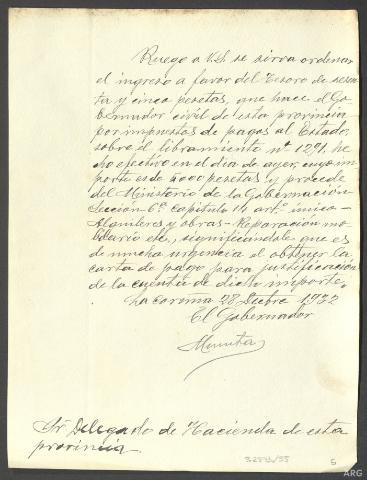 Ruego a V.S. se sirva ordenar
el ingreso a favor del Tesoro de sesen
ta y cinco pesetas, que hace el Go
bernador civil de esta provincia
por impuestos de pagos al Estado,
sobre el libramiento nº 1291, he
cho efectivo en el dia de ayer, cuyo im
porte es de 5000 pesetas y procede
del Ministerio de la Gobernación
Sección 6ª capitulo 14 artº único-
Alquileres y obras - Reparación mo
biliario etc, significándole que es
de mucha urgencia el obtener la
carta de pago para justificación
de la cuenta de dicho importe.
La coruña 28 Dicbre 1922
El Gobernador
Sr Delegado de Hacienda de esta
provincia.
5
ARG